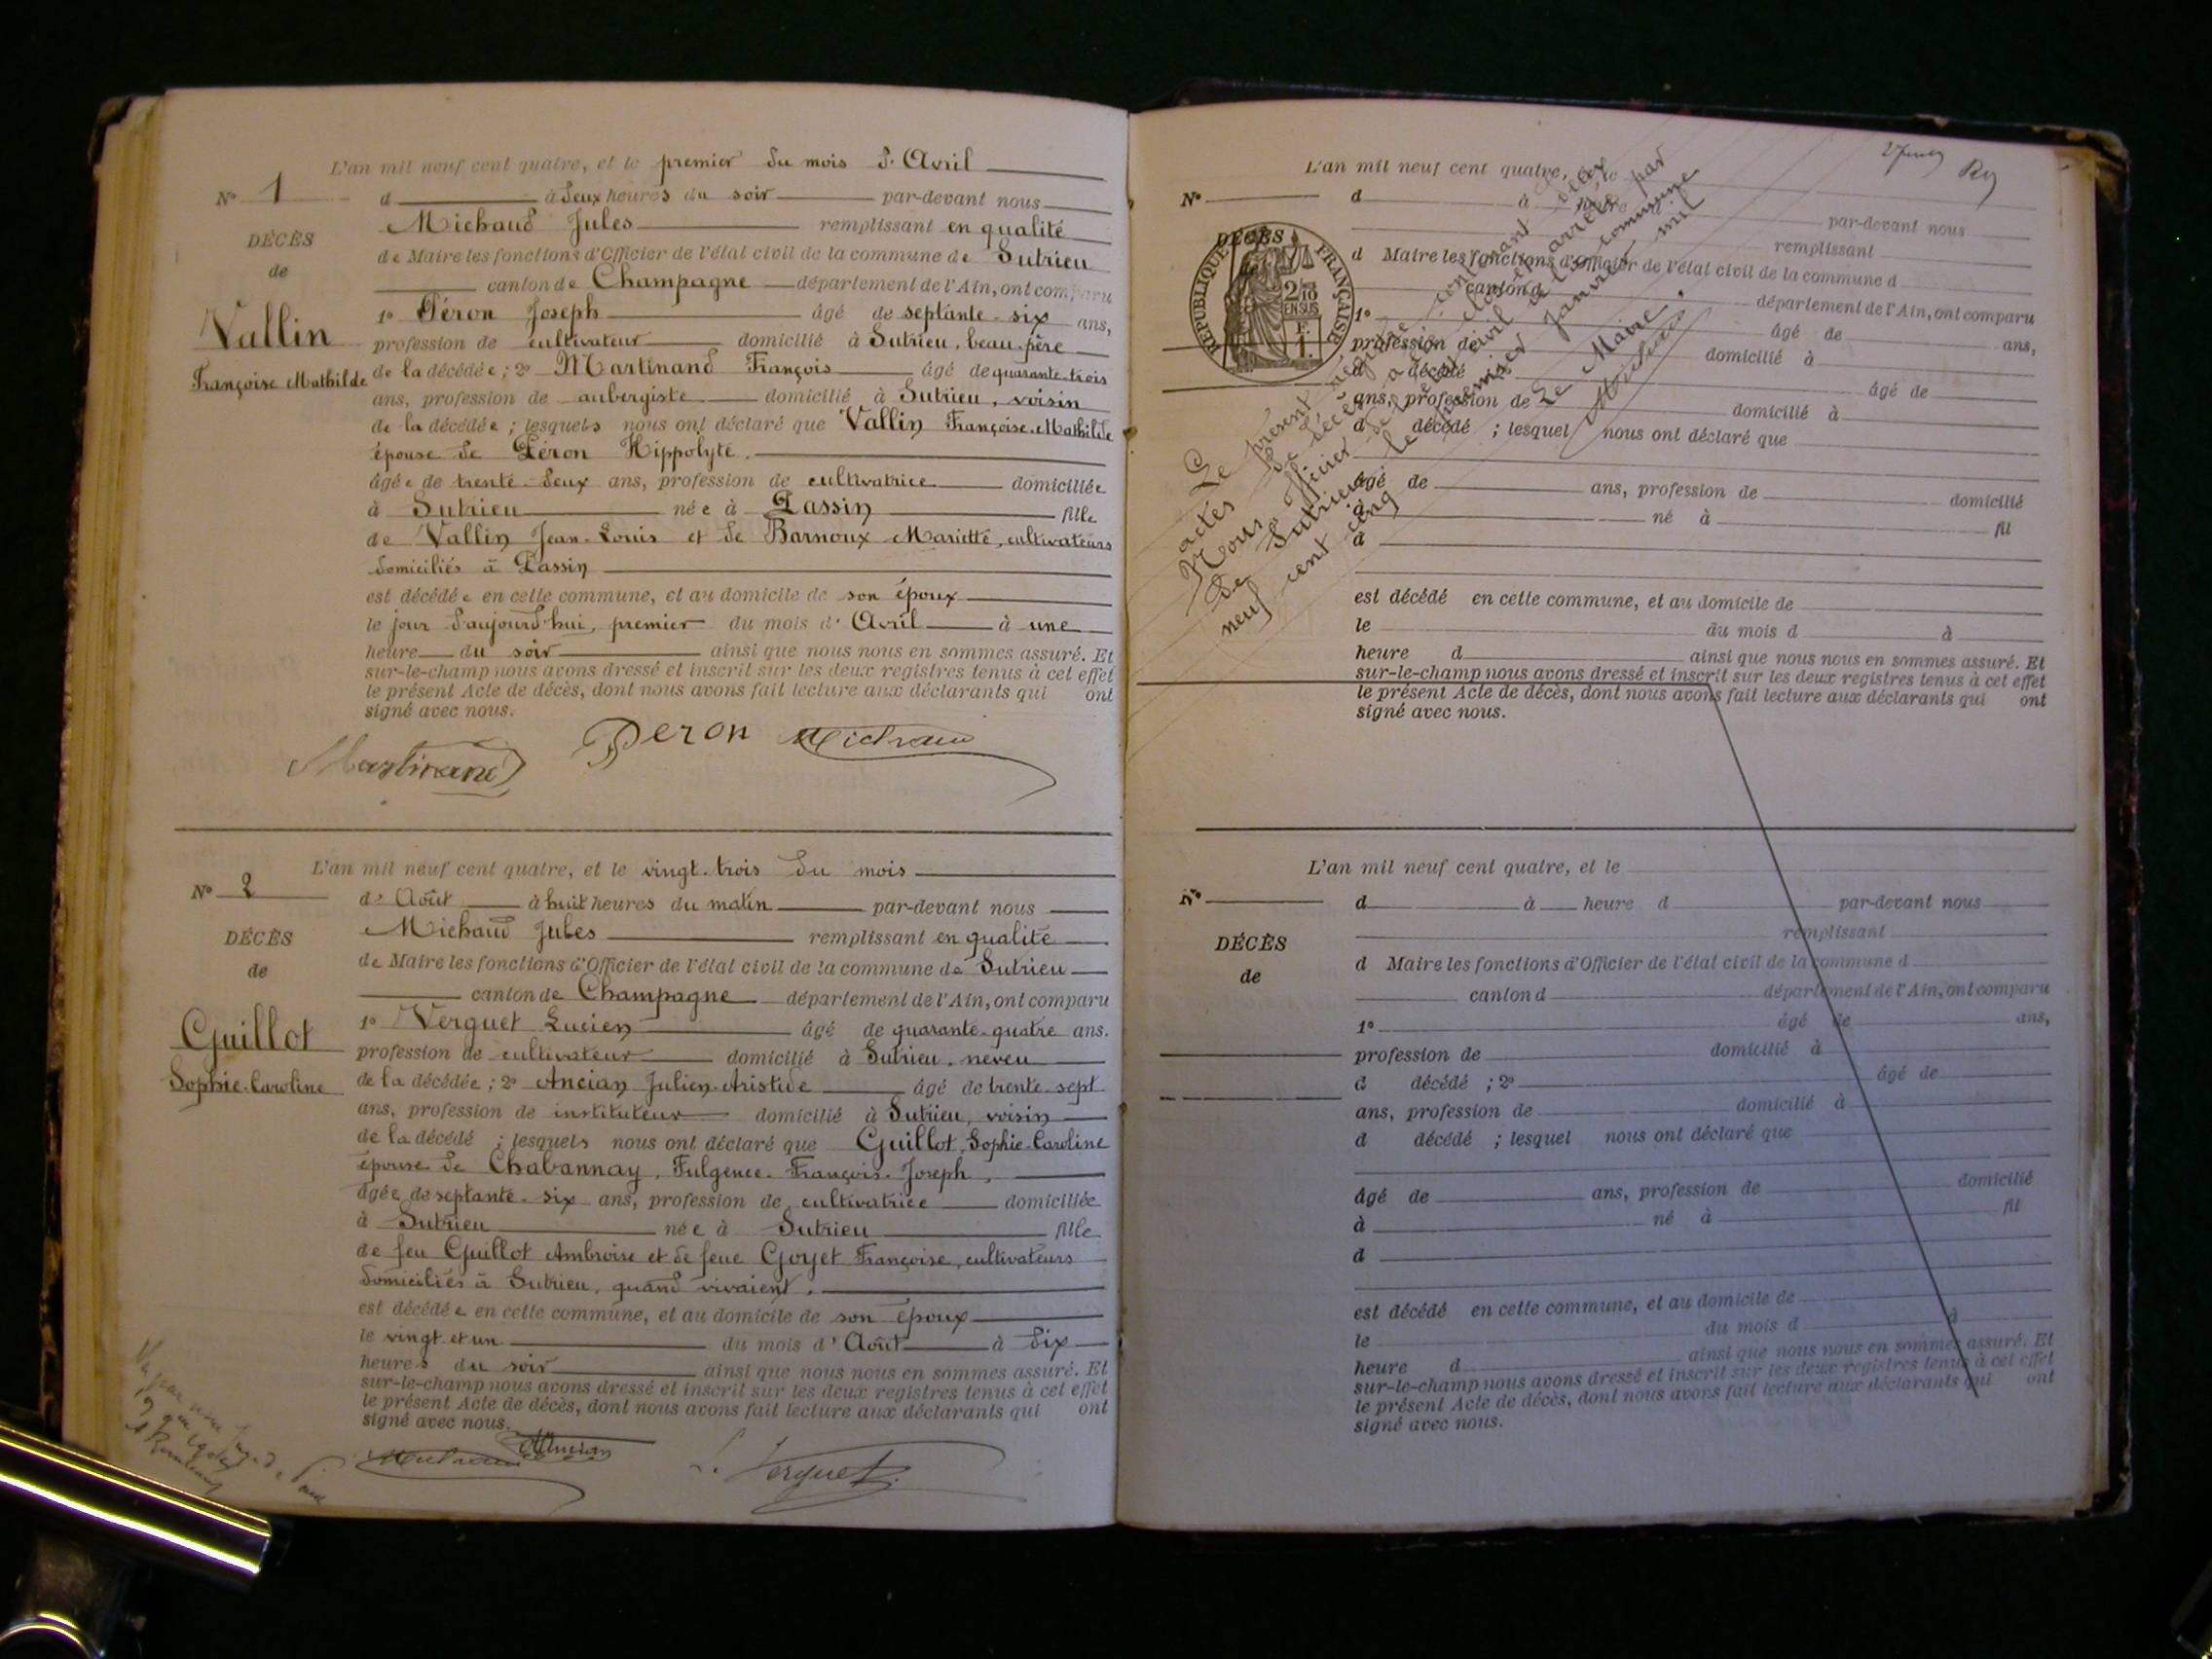 L'an mil neuf cent quatre, et le premier du mois d'Avril
N° 1
d à deux heures du soir par-devant nous
Michaud Jules remplissant en qualité
DÉCÈS
de Maire les fonctions d'Officier de l'état civil de la commune de Sutrieu
de
canton de Champagne département de l'Ain, ont comparu
1° Péron Joseph âgé de septante-six ans,
Vallin
profession de cultivateur domicilié à Sutrieu, beau-père
Françoise Mathilde
de la décédée ; 2° Martinand François âgé de quarante-trois
ans, profession de aubergiste domicilié à Sutrieu, voisin
de la décédée ; lesquels nous ont déclaré que Vallin Françoise-Mathilde
épouse de Péron Hippolyte,
âgée de trente-deux ans, profession de cultivatrice domiciliée
à Sutrieu née à Passin fille
de Vallin Jean-Louis et de Barnoux Mariette, cultivateurs
domiciliés à Passin
est décédée en cette commune, et au domicile de son époux
le jour d'aujourd'hui, premier du mois d'Avril à une
heure du soir ainsi que nous nous en sommes assuré. Et
sur-le-champ nous avons dressé et inscrit sur les deux registres tenus à cet effet
le présent Acte de décès, dont nous avons fait lecture aux déclarants qui ont
signé avec nous.
Martinand Peron Michaud
L'an mil neuf cent quatre, et le vingt-trois du mois
N° 2
d'Août à huit heures du matin par-devant nous
Michaud Jules remplissant en qualité
DÉCÈS
de Maire les fonctions d'Officier de l'état civil de la commune de Sutrieu
de
canton de Champagne département de l'Ain, ont comparu
1° Verguet Lucien âgé de quarante-quatre ans.
Guillot
profession de cultivateur domicilié à Sutrieu, neveu
Sophie-Caroline
de la décédée ; 2° Ancian Julien-Aristide âgé de trente-sept
ans, profession de instituteur domicilié à Sutrieu, voisin
de la décédé ; lesquels nous ont déclaré que Guillot, Sophie-Caroline
épouse de Chabannay, Fulgence-François-Joseph,
âgée de septante-six ans, profession de cultivatrice domiciliée
à Sutrieu née à Sutrieu fille
de feu Guillot Ambroise et de feue Goyet Françoise, cultivateurs
domiciliés à Sutrieu, quand vivaient,
est décédée en cette commune, et au domicile de son époux
le vingt et un du mois d'Août à dix
heures du soir ainsi que nous nous en sommes assuré. Et
sur-le-champ nous avons dressé et inscrit sur les deux registres tenus à cet effet
le présent Acte de décès, dont nous avons fait lecture aux déclarants qui ont
signé avec nous.
Michaud Ancian L. Verguet
Vu par nous Juge de Paix
L'an mil neuf cent quatre, et le
N°
d à heure d par-devant nous
remplissant
DÉCÈS
de
d Maire les fonctions d'Officier de l'état civil de la commune d
canton d département de l'Ain, ont comparu
RÉPUBLIQUE FRANÇAISE
2/10
EN SUS
F.
1.
1° âgé de ans,
profession de domicilié à
d décédé âgé de
ans, profession de domicilié à
d décédé ; lesquel nous ont déclaré que
âgé de ans, profession de domicilié
à né à fil
d
est décédé en cette commune, et au domicile de
le du mois d à
heure d ainsi que nous nous en sommes assuré. Et
sur-le-champ nous avons dressé et inscrit sur les deux registres tenus à cet effet
le présent Acte de décès, dont nous avons fait lecture aux déclarants qui ont
signé avec nous.
Le présent registre contenant deux
actes de décès a été clos et arrêté par
Nous officier de l'état civil de la commune
de Sutrieu le premier Janvier mil
neuf cent cinq
Le Maire,
Michaud
L'an mil neuf cent quatre, et le
N°
d à heure d par-devant nous
remplissant
DÉCÈS
d Maire les fonctions d'Officier de l'état civil de la commune d
de
canton d département de l'Ain, ont comparu
1° âgé de ans,
profession de domicilié à
d décédé ; 2° âgé de
ans, profession de domicilié à
d décédé ; lesquel nous ont déclaré que
âgé de ans, profession de domicilié
à né à fil
d
est décédé en cette commune, et au domicile de
le du mois d à
heure d ainsi que nous nous en sommes assuré. Et
sur-le-champ nous avons dressé et inscrit sur les deux registres tenus à cet effet
le présent Acte de décès, dont nous avons fait lecture aux déclarants qui ont
signé avec nous.